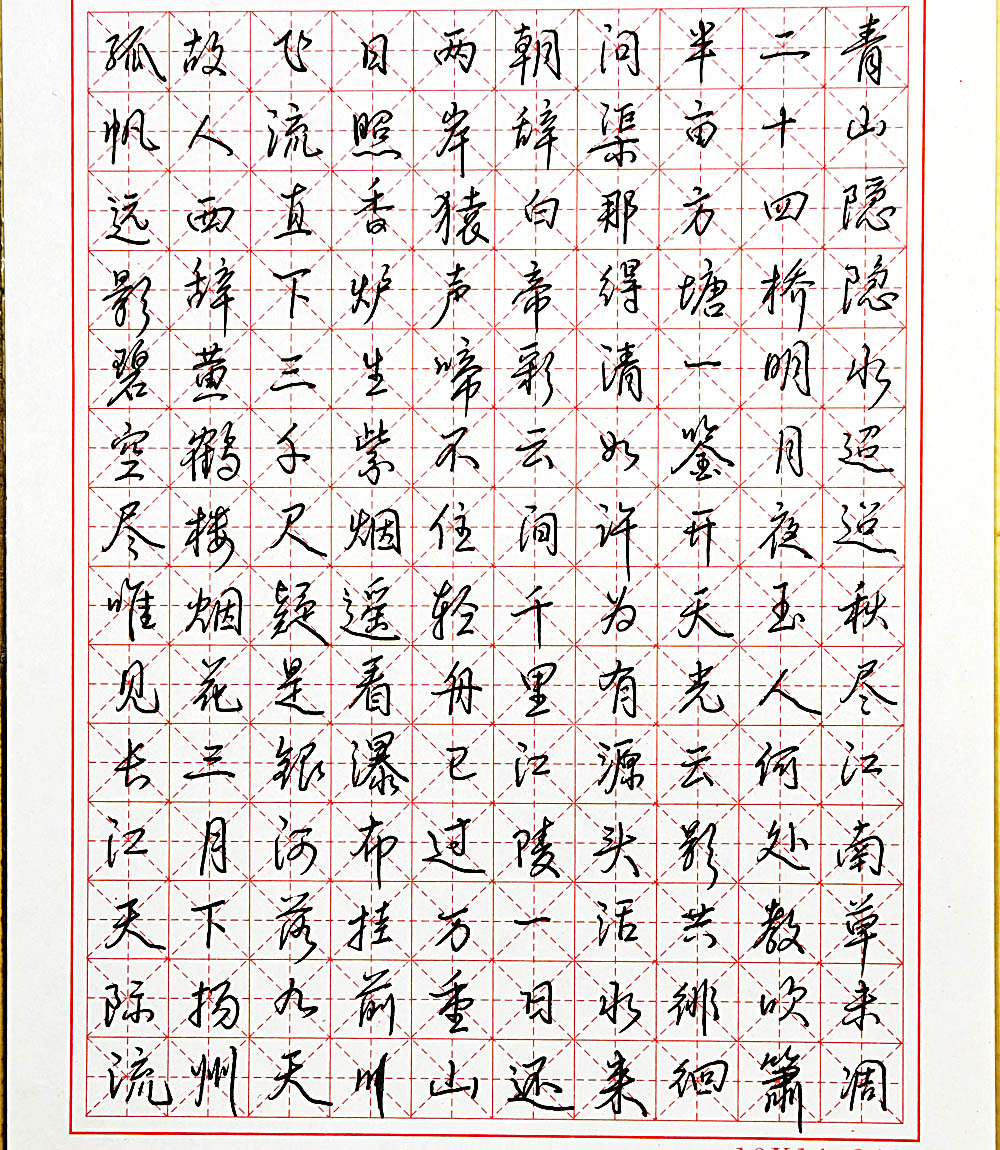 青山隐隐水迢迢秋尽江南草未凋
二十四桥明月夜玉人何处教吹簫
半亩方塘一鉴开天光云影共徘徊
问渠那得清如许为有源头活水来
朝辞白帝彩云间千里江陵一日还
两岸猿声啼不住轻舟已过万重山
日照香炉生紫烟遥看瀑布挂前川
飞流直下三千尺疑是银河落九天
故人西辞黄鹤楼烟花三月下扬州
孤帆远影碧空尽唯见长江天际流